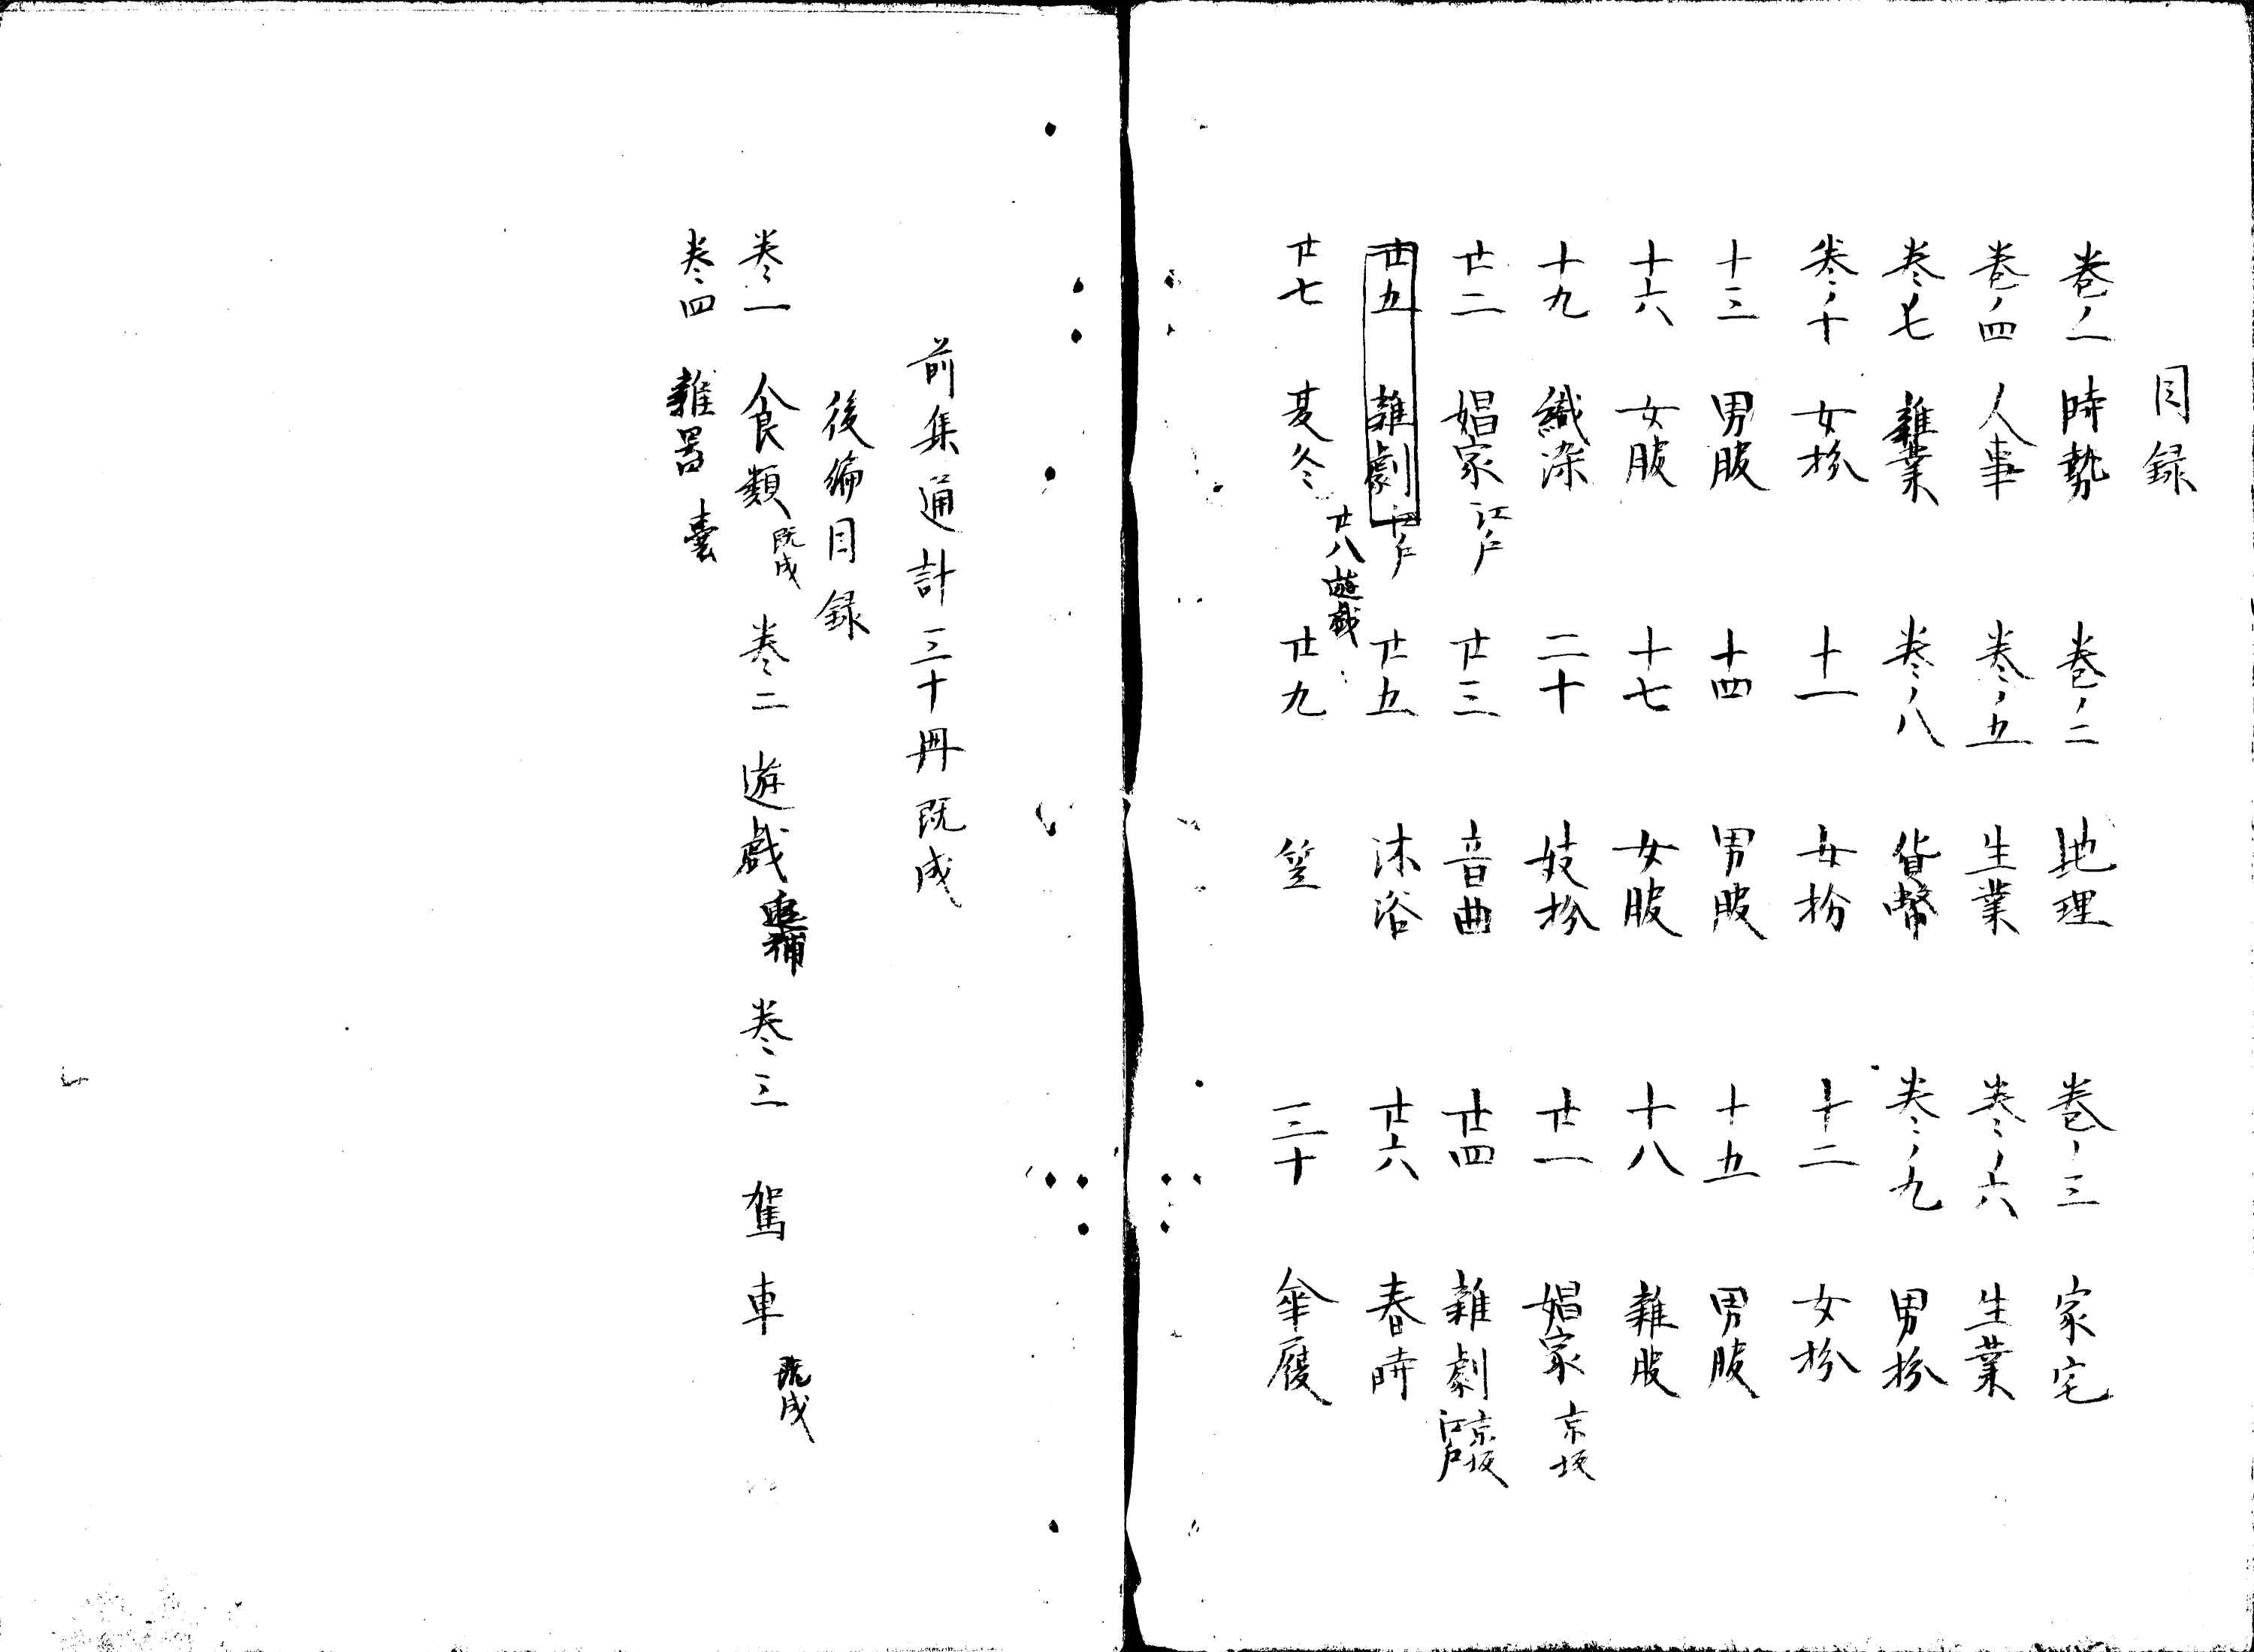 目録
巻ノ一 時勢 巻ノ二 地理 巻ノ三 家宅
巻ノ四 人事 巻ノ五 生業 巻ノ六 生業
巻ノ七 雑業 巻ノ八 貨幣 巻ノ九 男扮
巻ノ十 女扮 十一 女扮 十二 女扮
十三 男服 十四 男服 十五 男服
十六 女服 十七 女服 十八 雑服
十九 織染 二十 妓扮 廿一 娼家 京坂
廿二 娼家 江戸 廿三 音曲 廿四 雑劇 京坂 江戸
廿五 雑劇 江戸 廿五 沐浴 廿六 春時
廿八 遊戯
廿七 夏冬 廿九 笠 三十 傘履
前集通計三十冊既成
後編目録
巻一 食類 既成 巻二 遊戯 追補 巻三 駕車 既成
巻四 雑器 囊